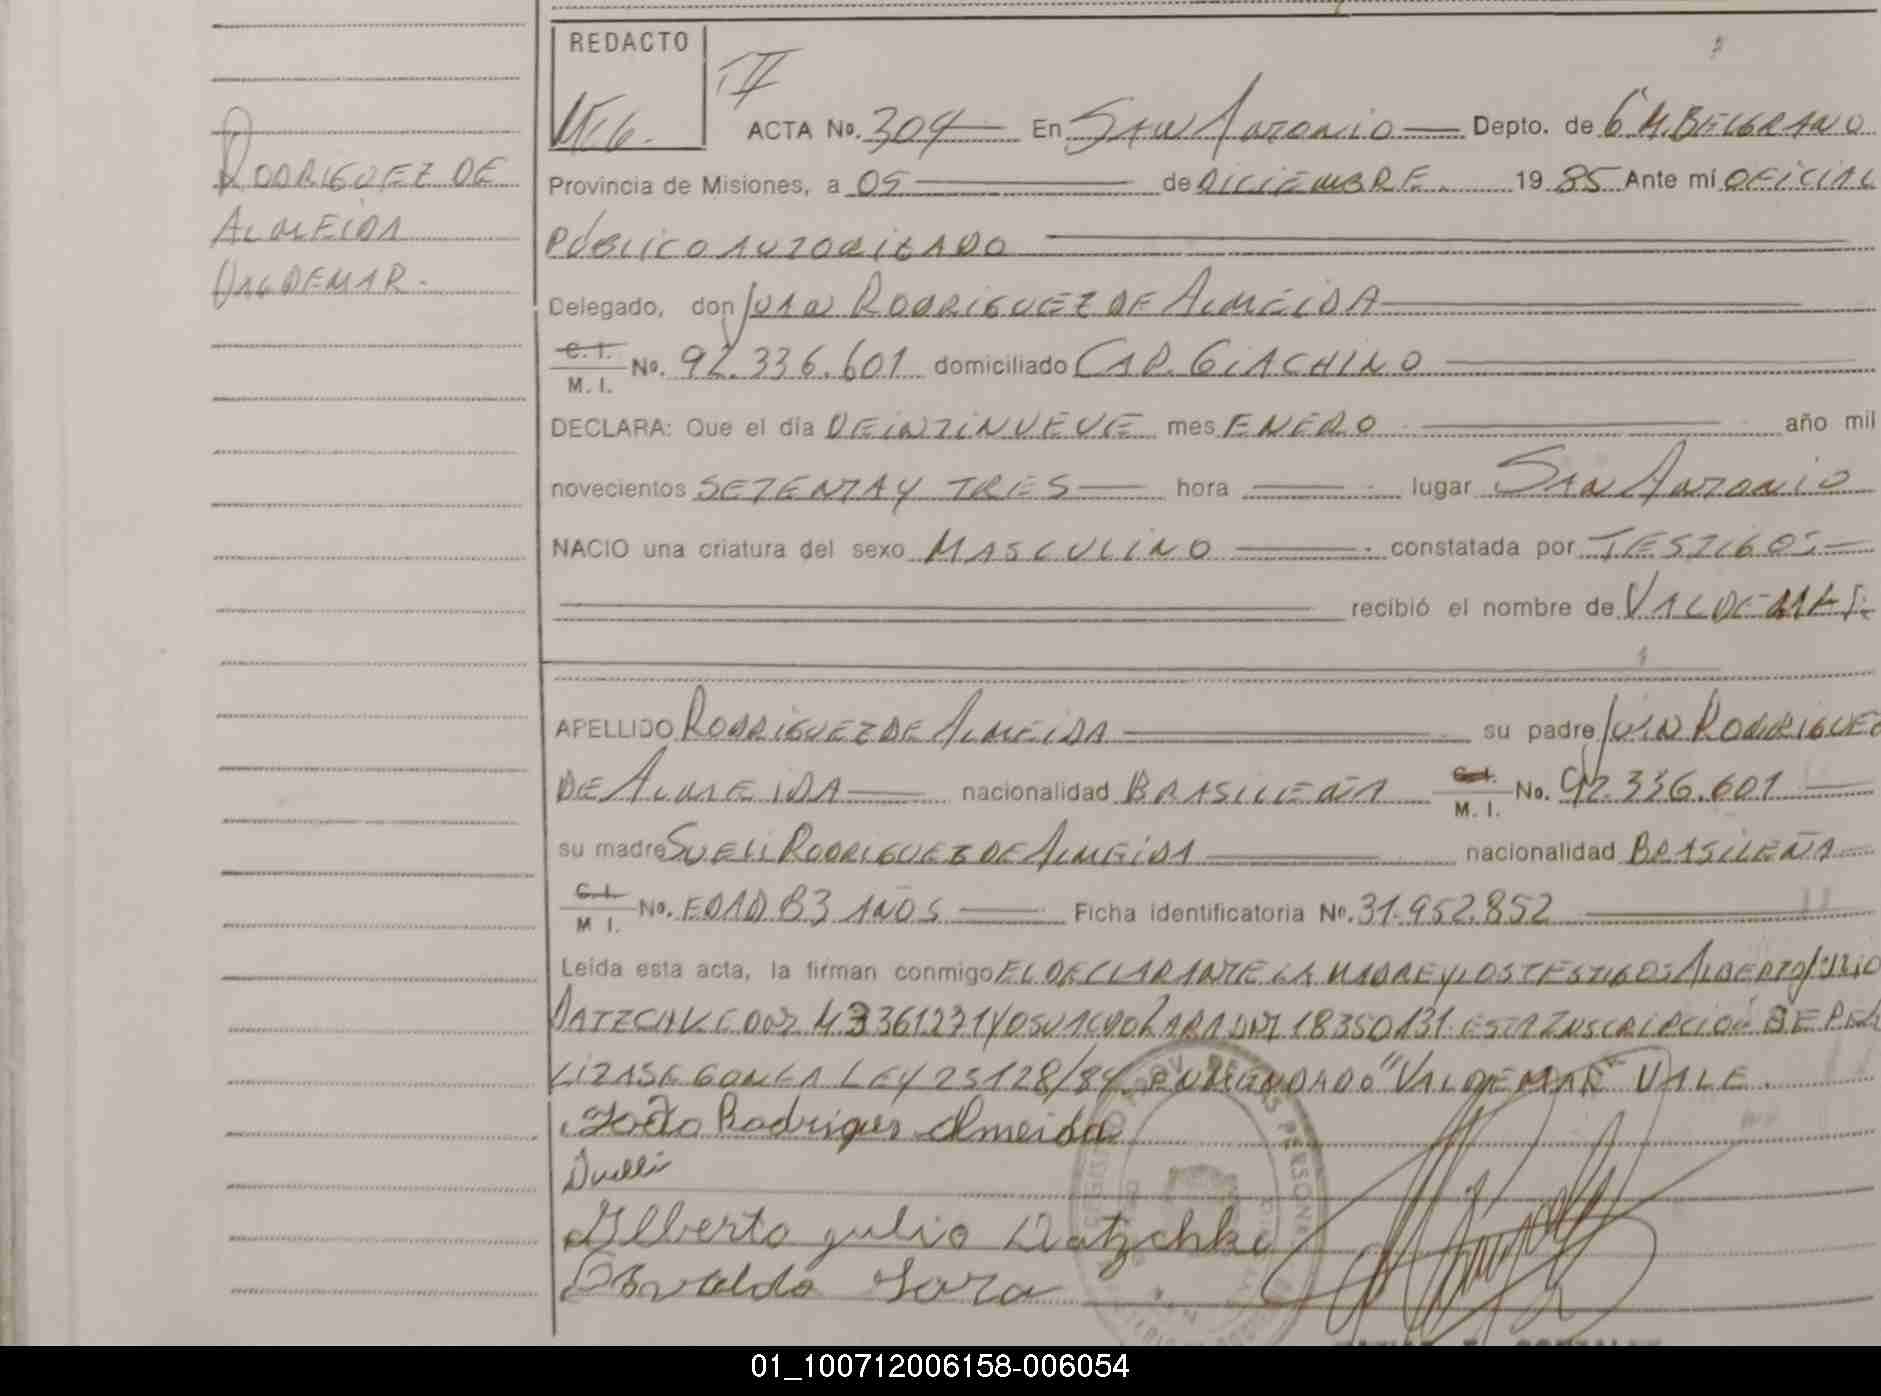 REDACTO
ACTA No. 304 En San Antonio Depto. de G. M. BELGRANO
Provincia de Misiones, a 05 de DICIEMBRE. 19 85 Ante mí OFICIAL
PÚBLICO AUTORIZADO
RODRIGUEZ DE
ALMEIDA
VALDEMAR.
Delegado, don JUAN RODRIGUEZ DE ALMEIDA
C. I. M. I. No. 92.336.601 domiciliado CAP. GIACHINO
DECLARA: Que el día VEINTINUEVE mes ENERO año mil
novecientos SETENTA Y TRES hora lugar SAN ANTONIO
NACIO una criatura del sexo MASCULINO constatada por TESTIGOS
recibió el nombre de VALDEMAR
APELLIDO RODRIGUEZ DE ALMEIDA su padre JUAN RODRIGUEZ
DE ALMEIDA nacionalidad BRASILEÑA C.I. M. I. No. 92.336.601
su madre SUELI RODRIGUEZ DE ALMEIDA nacionalidad BRASILEÑA
C.I. M I. No. EDAD 33 AÑOS Ficha identificatoria No. 31.952.852
Leida esta acta, la firman conmigo EL DECLARANTE LA MADRE Y LOS TESTIGOS ALBERTO JULIO
DATZCHKE Y OSVALDO LARA DNI 18350131 ESTA INSCRIPCIÓN SE REA
LIZASE CON LA LEY 23128/84 ENMENDADO "VALDEMAR" VALE.
João Rodrigues Almeida
Suelli
Alberto julio Datzchke
Osvaldo Lara
01_100712006158-006054